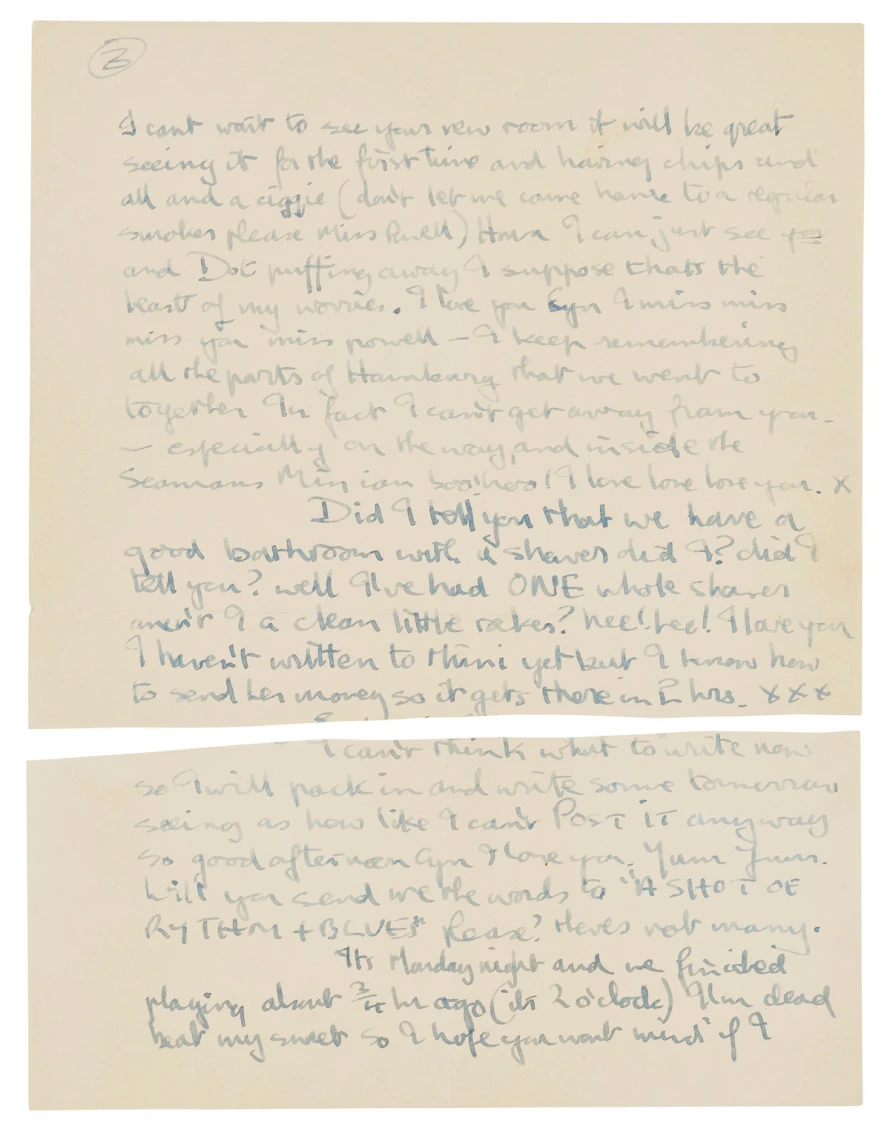 3
I cant wait to see your new room it will be great
seeing it for the first time and having chips and
all and a ciggie (don't let me come home to a regular
smoker please Miss Powell) Hmm I can just see you
and Dot puffing away I suppose thats the
least of my worries. I love you Cyn I miss miss
miss you miss powell — I keep remembering
all the parts of Hamburg that we went to
together In fact I can't get away from you –
— especially on the way, and inside the
Seamans Mission boo'hoo! I love love love you. X
Did I tell you that we have a
good bathroom with a shower did I? did I
tell you? well I've had ONE whole shower
aren't I a clean little raker? hee! hee! I love you
I haven't written to Mimi yet but I know how
to send her money so it gets there in 2 hrs. x x x
I can't think what to write now
so I will pack in and write some tomorrow
seeing as how like I can't POST IT anyway
so good afternoon Cyn I love you. Yum Yum.
Will you send me the words to "A SHOT OF
RYTHM + BLUES" please? theres not many.
Its Monday night and we finished
playing about 3/4 hr ago (its 2 o'clock) I'm dead
beat my sweet so I hope you wont mind if I